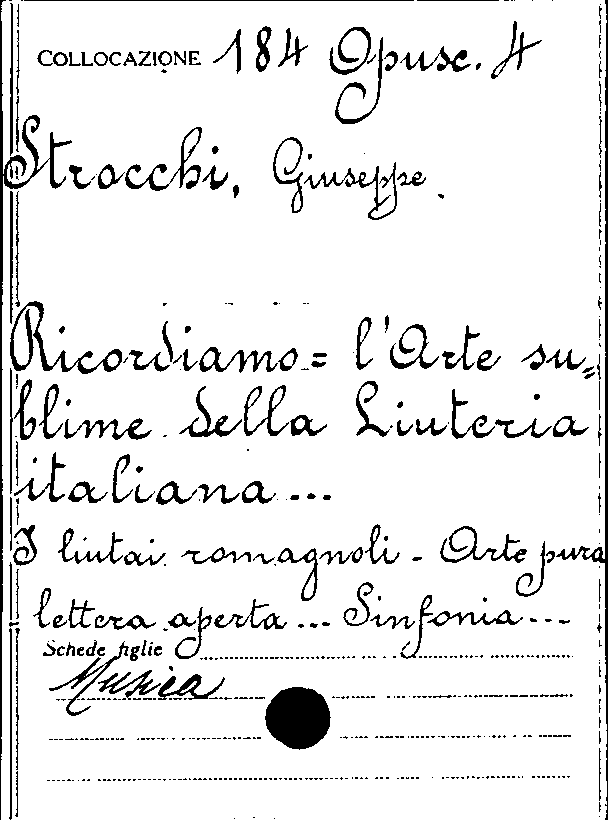 COLLOCAZIONE 184 Opusc. 4
Strocchi, Giuseppe.
Ricordiamo= l'Arte su=
blime della Liuteria
italiana...
I liutai romagnoli - Arte pura
lettera aperta... Sinfonia...
Schede figlie
Musica